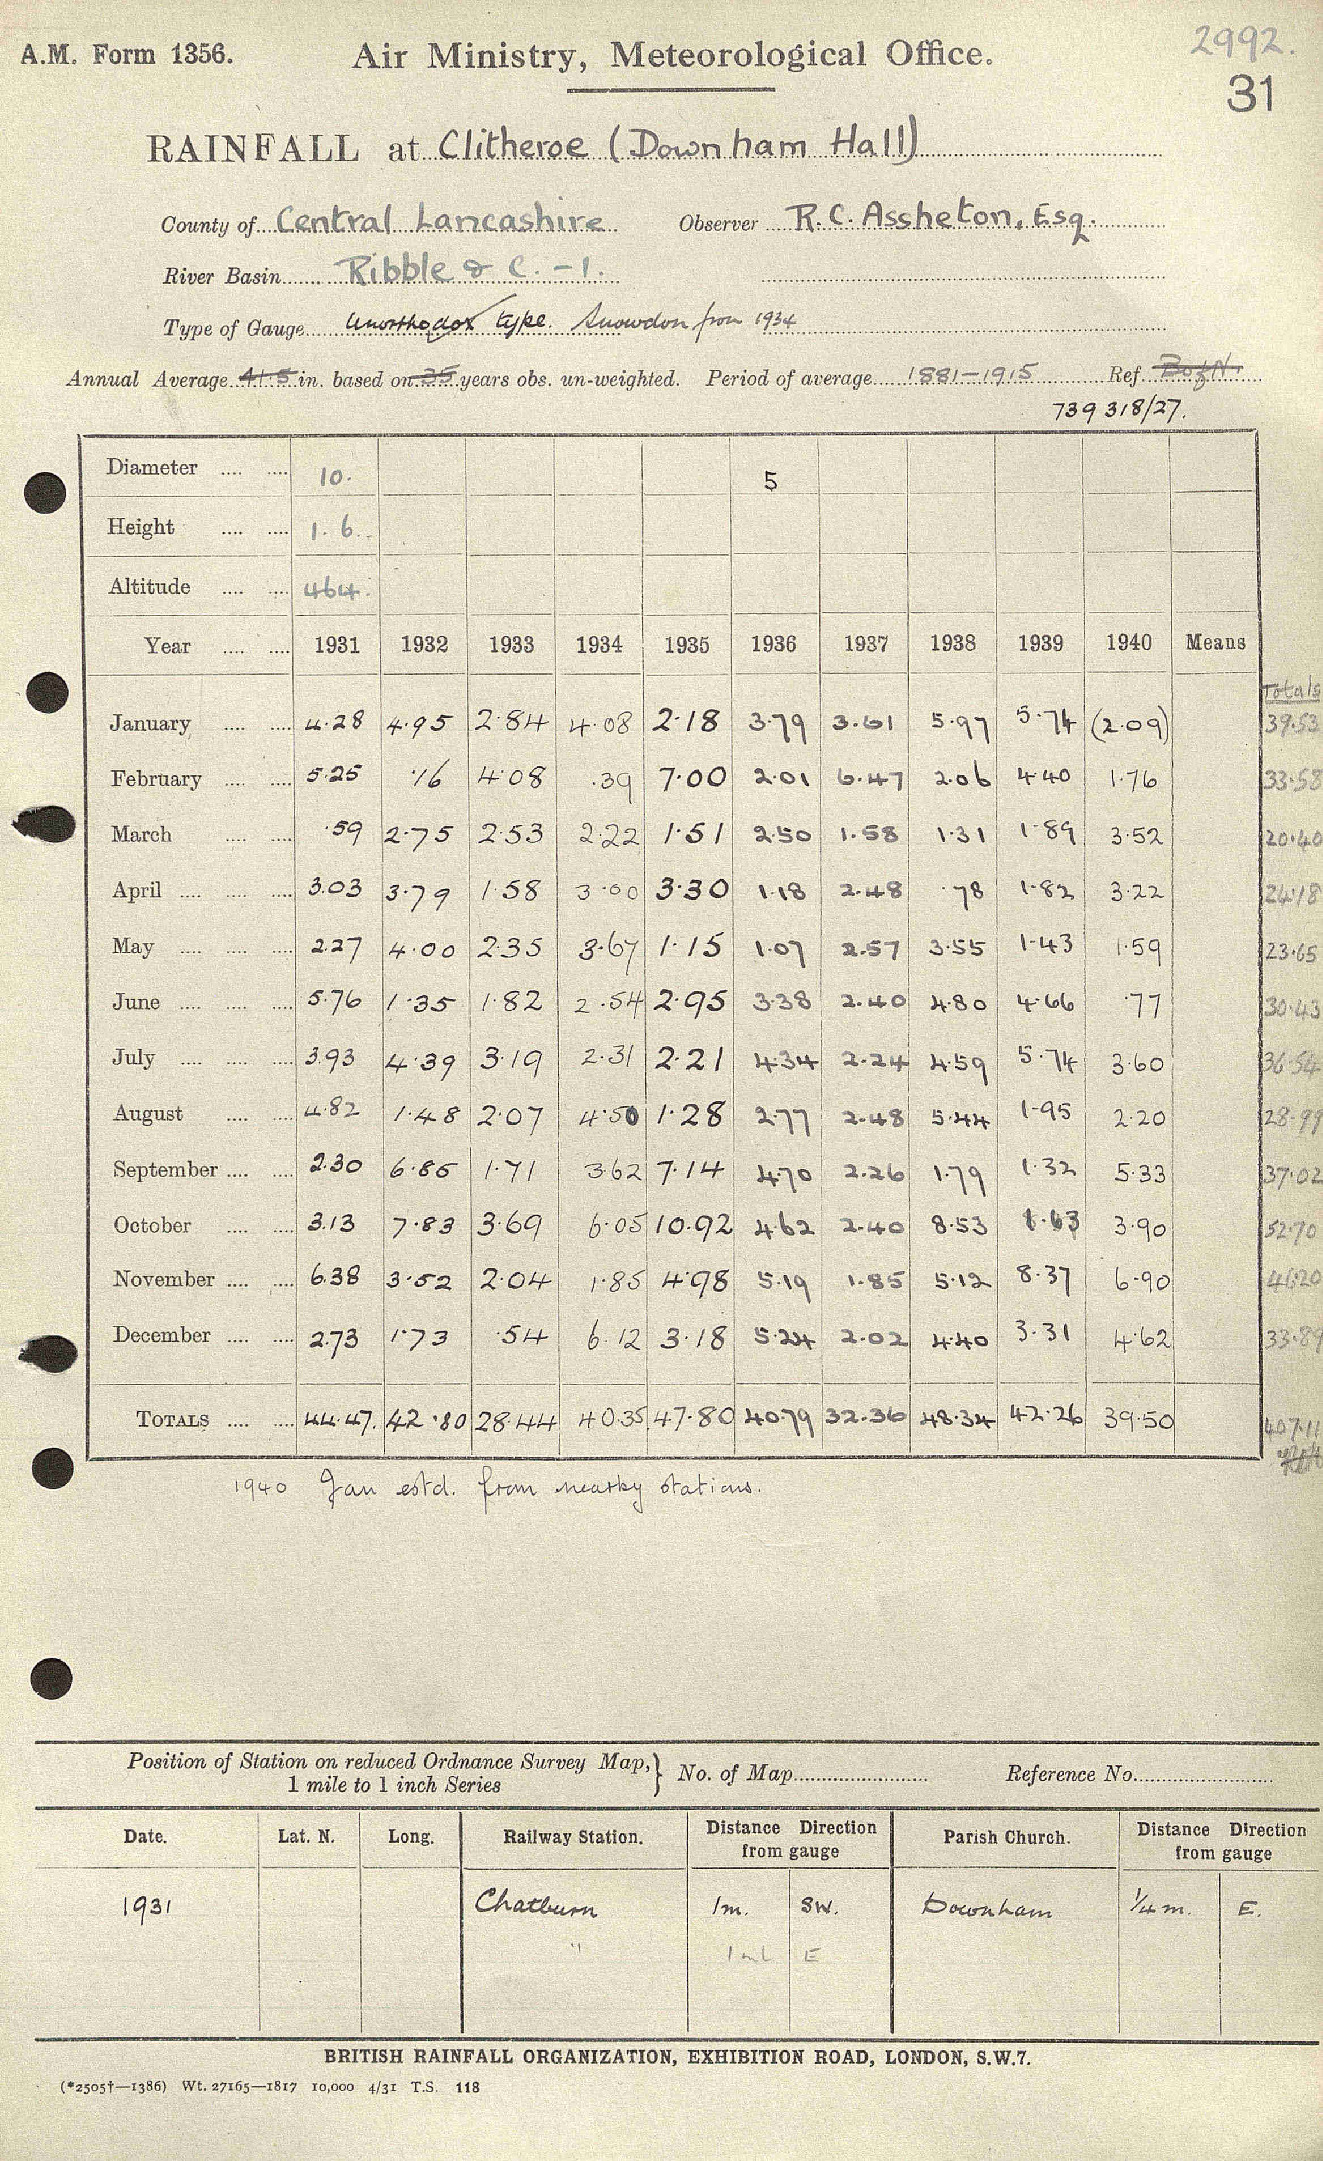 2992.
A.M. Form 1356. Air Ministry, Meteorological Office.
31
RAINFALL at Clitheroe (Downham Hall)
County of Central Lancashire Observer R.C. Assheton, Esq.
River Basin Ribble & C. - 1.
Type of Gauge Unorthodox type. Snowdon from 1934
Annual Average 41.5 in. based on 35 years obs. un-weighted. Period of average 1881-1915 Ref.
739 318/27.
Diameter 10. 5
Height 1. 6.
Altitude 464.
Year 1931 1932 1933 1934 1935 1936 1937 1938 1939 1940 Means
Totals
January 4.28 4.95 2.84 4.08 2.18 3.79 3.61 5.97 5.74 (2.09) 39.53
February 5.25 .16 4.08 .39 7.00 2.01 6.47 2.06 4.40 1.76 33.58
March .59 2.75 2.53 2.22 1.51 2.50 1.58 1.31 1.89 3.52 20.40
April 3.03 3.79 1.58 3.00 3.30 1.18 2.48 .78 1.82 3.22 24.18
May 2.27 4.00 2.35 3.67 1.15 1.07 2.57 3.55 1.43 1.59 23.65
June 5.76 1.35 1.82 2.54 2.95 3.38 2.40 4.80 4.66 .77 30.43
July 3.93 4.39 3.19 2.31 2.21 4.34 2.24 4.59 5.74 3.60 36.54
August 4.82 1.48 2.07 4.50 1.28 2.77 2.48 5.44 1.95 2.20 28.99
September 2.30 6.85 1.71 3.62 7.14 4.70 2.26 1.79 1.32 5.33 37.02
October 3.13 7.83 3.69 6.05 10.92 4.62 2.40 8.53 1.63 3.90 52.70
November 6.38 3.52 2.04 1.85 4.98 5.19 1.85 5.12 8.37 6.90 46.20
December 2.73 1.73 .54 6.12 3.18 5.24 2.02 4.40 3.31 4.62 33.89
TOTALS 44.47. 42.80 28.44 40.35 47.80 40.79 32.36 48.34 42.26 39.50 407.11
1940 Jan estd. from nearby stations.
Position of Station on reduced Ordnance Survey Map, 1 mile to 1 inch Series } No. of Map Reference No.
Date. Lat. N. Long. Railway Station. Distance Direction from gauge Parish Church. Distance Direction from gauge
1931 Chatburn 1m. SW. Downham 1/4 m. E.
" 1 ml E
BRITISH RAINFALL ORGANIZATION, EXHIBITION ROAD, LONDON, S.W.7.
(*2505†—1386) Wt. 27165—1817 10,000 4/31 T.S. 118